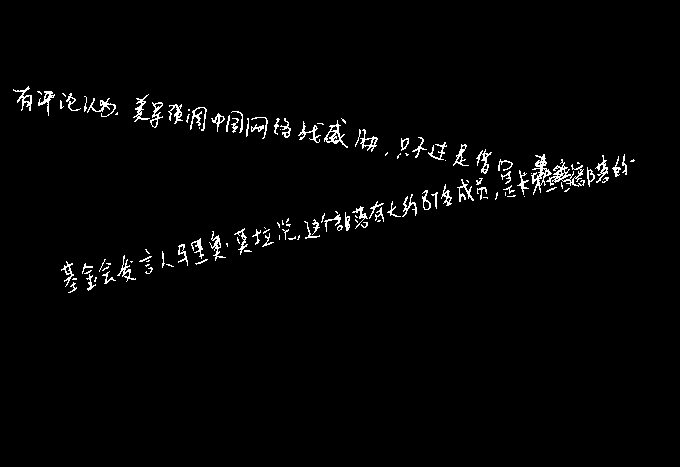 有评论认为,美军强调中国网络战威胁,只不过是借口
基金会发言人马里奥·莫拉说,这个部落有大约87名成员,是卡部落的一